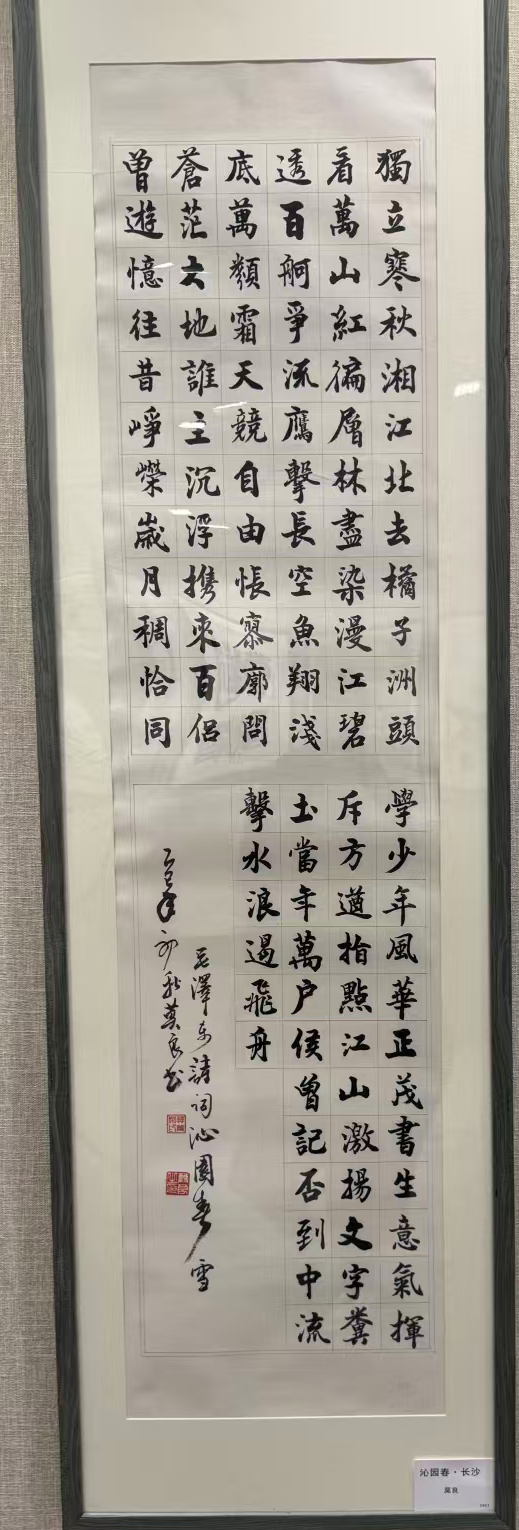 獨立寒秋湘江北去橘子洲頭
看萬山紅徧層林盡染漫江碧
透百舸爭流鷹擊長空魚翔淺
底萬類霜天競自由悵寥廓問
蒼茫大地誰主沉浮携來百侶
曾遊憶往昔崢嶸歲月稠恰同
學少年風華正茂書生意氣揮
斥方遒指點江山激揚文字糞
土當年萬户侯曾記否到中流
擊水浪遏飛舟
毛澤东詩词沁園春雪
乙巳年初秋莫良书
沁园春·长沙
莫良